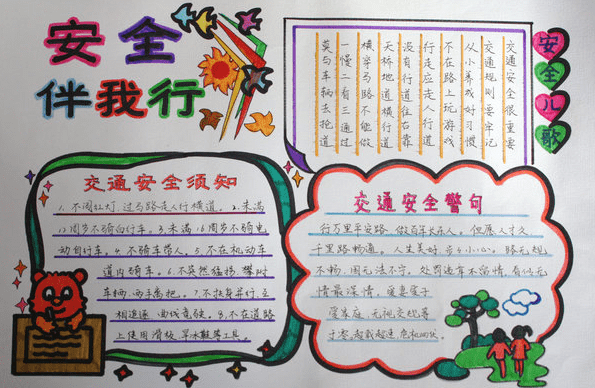 安全
伴我行
安全儿歌
交通安全很重要
交通规则要牢记
从小养成好习惯
不在路上玩游戏
行走应走人行道
没有行道往右靠
天桥地道横行道
横穿马路不能做
一慢二看三通过
莫与车辆去抢道
交通安全须知
1.不闯红灯,过马路走人行横道。2.未满
12周岁不骑自行车。3.未满16周岁不骑电
动自行车。4.不骑车带人。5.不在机动车
道内骑车。6.不突然猛拐 攀附
车辆 两手离把。7.不扶身并行,互
相追逐 曲线竞驶。8.不在道路
上使用滑板 旱冰鞋等工具。
交通安全警句
行万里平安路 做百年长在人。但愿人才久
千里路畅通。人生美好 步步小心。路无规
不畅 国无法不宁。处罚违章不留情 看似无
情最深情。爱妻爱子
爱家庭 无视交规等
于零 超载超速 危机四伏